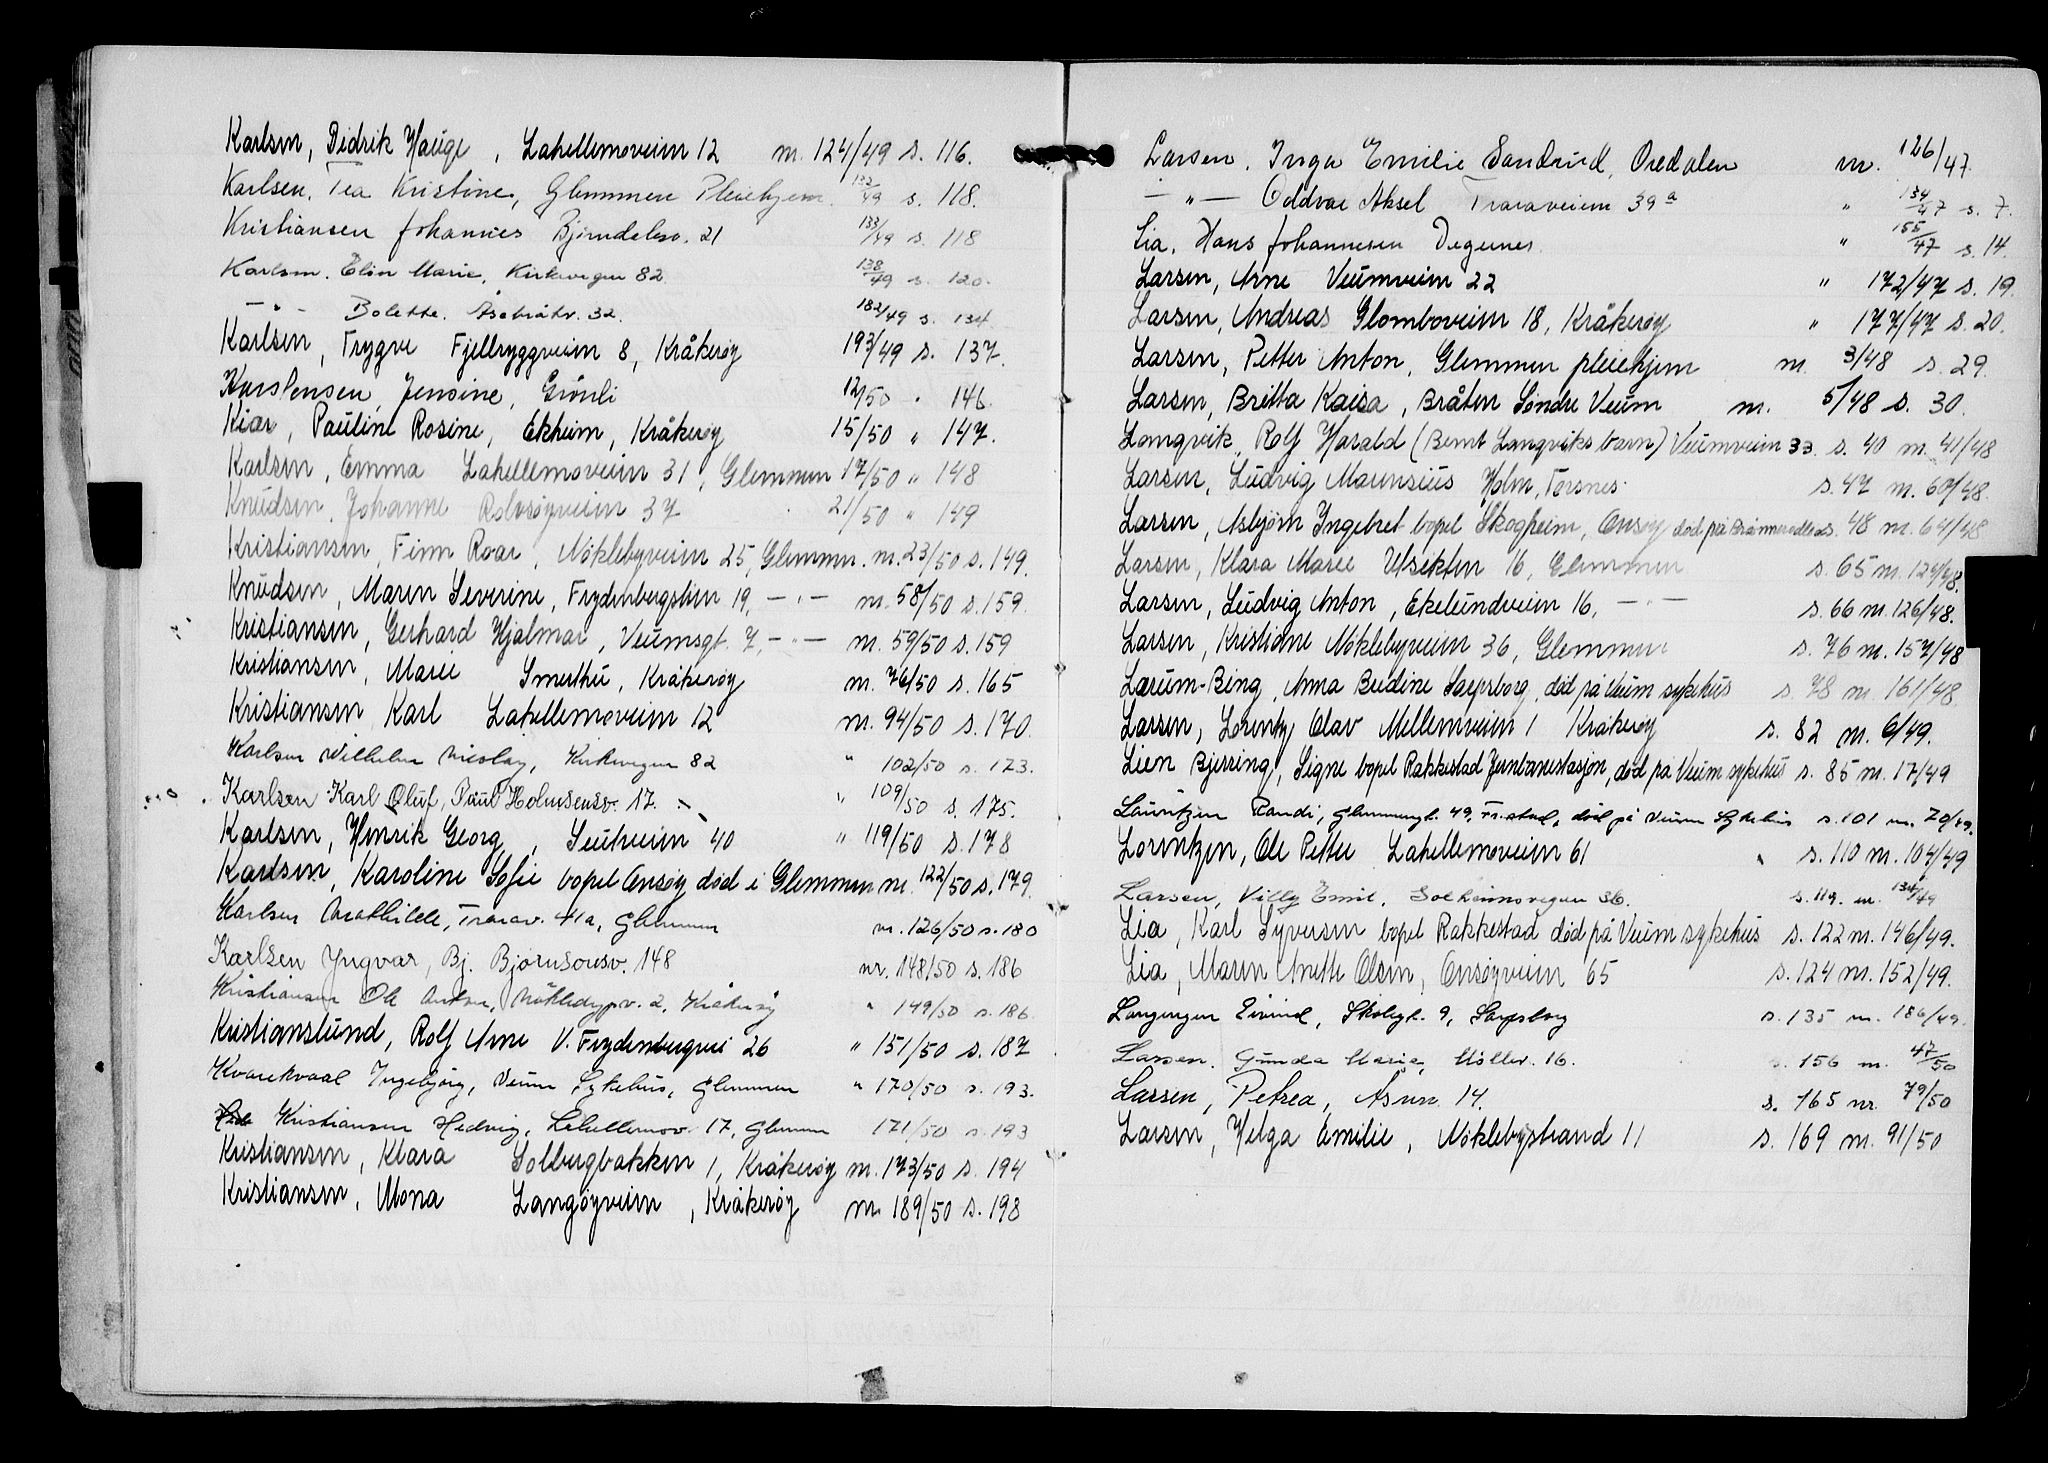 Karlsen, Didrik Hauge, Lahellemoveien 12 nr. 124/49 s. 116.
Karlsen, Tea Kristine, Glemmen Pleiehjem. 132/49 s. 118.
Kristiansen Johannes Bjørndalsv. 21 133/49 s. 118
Karlsen. Elin Marie, Kirkevegen 82 138/49 s. 120.
— " — Bolette. Åsebråtv. 32. 182/49 s. 134
Karlsen, Trygve Fjellryggveien 8, Kråkerøy 193/49 s. 137.
Karstensen, Jensine, Grönli 12/50 " 146
Kiær, Pauline Rosine, Ekheim, Kråkerøy 15/50 " 147.
Karlsen, Emma Lahellemoveien 31, Glemmen 17/50 " 148
Knudsen, Johanne Rolvsøyveien 37 21/50 " 149
Kristiansen, Finn Roar, Nöklebyveien 25, Glemmen. nr. 23/50 s. 149.
Knudsen, Maren Severine, Frydenbergstien 19, — " — nr. 58/50 s. 159.
Kristiansen, Gerhard Hjalmar, Veumsgt. 7, — " — nr. 59/50 s. 159
Kristiansen, Marie Smertu, Kråkerøy nr. 76/50 s. 165
Kristiansen Karl Lahellemoveien 12 nr. 94/50 s. 170.
Karlsen Wilhelm Nicolay, Kirkevegen 82 " 102/50 s. 173.
Karlsen Karl Oluf, Paul Holmsensv. 17. " 109/50 s. 175.
Karlsen, Henrik Georg, Seutveien 40 " 119/50 s. 178
Karlsen, Karoline Sofie bopel Onsøy död i Glemmen nr. 122/50 s. 179.
Karlsen Mathilde, Trarav. 41a, Glemmen nr. 126/50 s. 180
Karlsen Yngvar, Bj. Bjørnsonsv. 148 nr. 148/50 s. 186
Kristiansen Ole Anton, Nöklebypv. 2, Kråkerøy " 149/50 s. 186.
Kristianslund, Rolf Arne V. Frydenbergvei 26 " 151/50 s. 187
Kvarekvaal Ingebjörg, Veum Sykehus, Glemmen " 170/50 s. 193.
Kristiansen Hedvig, Lahellemov. 17, Glemmen 171/50 s. 193
Kristiansen, Klara Solbergbakken 1, Kråkerøy nr. 173/50 s. 194
Kristiansen, Mona Langöyveien, Kråkerøy nr. 189/50 s. 198
Larsen, Inga Emilie Sandrud, Oredalen nr. 126/47.
— " — Oddvar Aksel Traraveien 39a " 134/47 s. 7.
Lia, Hans Johannesen Degernes. " 155/47 s. 14.
Larsen, Arne Veumveien 22 " 172/47 s. 19.
Larsen, Andreas Glomboveien 18, Kråkerøy " 177/47 s. 20.
Larsen, Petter Anton, Glemmen pleiehjem nr. 3/48 s. 29.
Larsen, Britta Kaisa, Bråten Søndre Veum nr. 5/48 s. 30.
Langvik, Rolf Harald (Bernt Langviks barn) Veumveien 33 s. 40 nr. 41/48
Larsen, Ludvig Maurensius Holm, Torsnes. s. 47 nr. 60/48.
Larsen, Asbjørn Ingebret bopel Skogheim, Onsøy død på s. 48 nr. 64/48
Larsen, Klara Marie Utsikten 16, Glemmen s. 65 nr. 124/48.
Larsen, Ludvig Anton, Ekelundveien 16, — " — s. 66 nr. 126/48.
Larsen, Kristiane Nöklebyveien 36, Glemmen s. 76 nr. 157/48
Lærum-Bing, Anna Bredine Sarpsborg, død på Veum sykehus s. 78 nr. 161/48.
Larsen, Lorentz Olav Mellemveien 1 Kråkerøy s. 82 nr. 6/49.
Lien Bjerring, Signe bopel Rakkestad Jernbanestasjon, død på Veum sykehus s. 85 nr. 17/49
Lauritzen Randi, Glemmengt. 49, Fr.stad, död på Veum Sykehus s. 101 nr. 70/49.
Lorentzen, Ole Petter Lahellemoveien 61 s. 110 nr. 104/49
Larsen, Villy Emil, Solheimsvegen 36. s. 119. nr. 134/49
Lia, Karl Syversen bopel Rakkestad død på Veum sykehus s. 122 nr. 146/49.
Lia, Maren Anette Olsen, Onsøyveien 65 s. 124 nr. 152/49.
Langengen Eivind, Skolegt. 9, Sarpsborg s. 135 nr. 186/49.
Larsen. Gunda Marie, Möllerv. 16. s. 156 nr. 47/50
Larsen, Petrea, Åsvn. 14. s. 165 nr. 79/50
Larsen, Helga Emilie, Nöklebystrand 11 s. 169 nr. 91/50